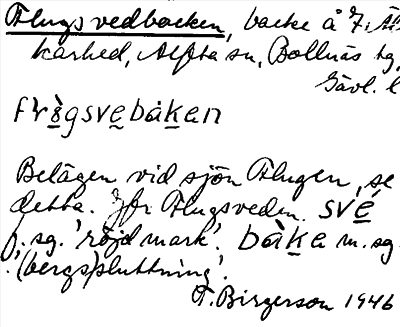 Flugsvedbacken, backe å F. Äl
karhed, Alfta sn, Bollnäs tg,
Gävl. l
frògsvebàken
Belägen vid sjön Flugen, se
detta. Jfr Flugsveden. své
f. sg. 'röjd mark'. bàke m. sg.
'(berg)sluttning'.
T. Birgerson 1946